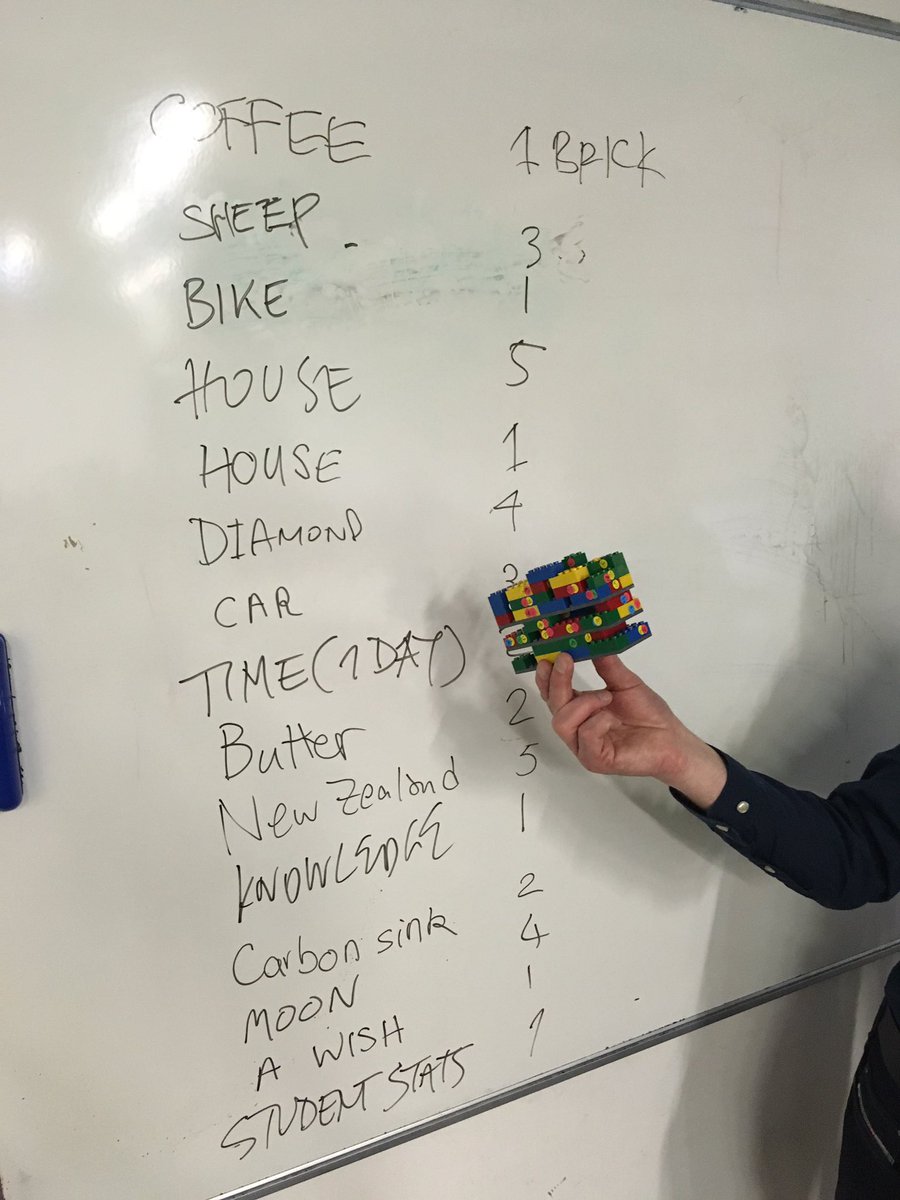 COFFEE 1 BRICK
SHEEP 3
BIKE 1
HOUSE 5
HOUSE 1
DIAMOND 4
CAR
TIME (1 DAY)
Butter 2
New Zealand 5
KNOWLEDGE 1
Carbon sink 2
MOON 4
A WISH 1
STUDENT STATS 1